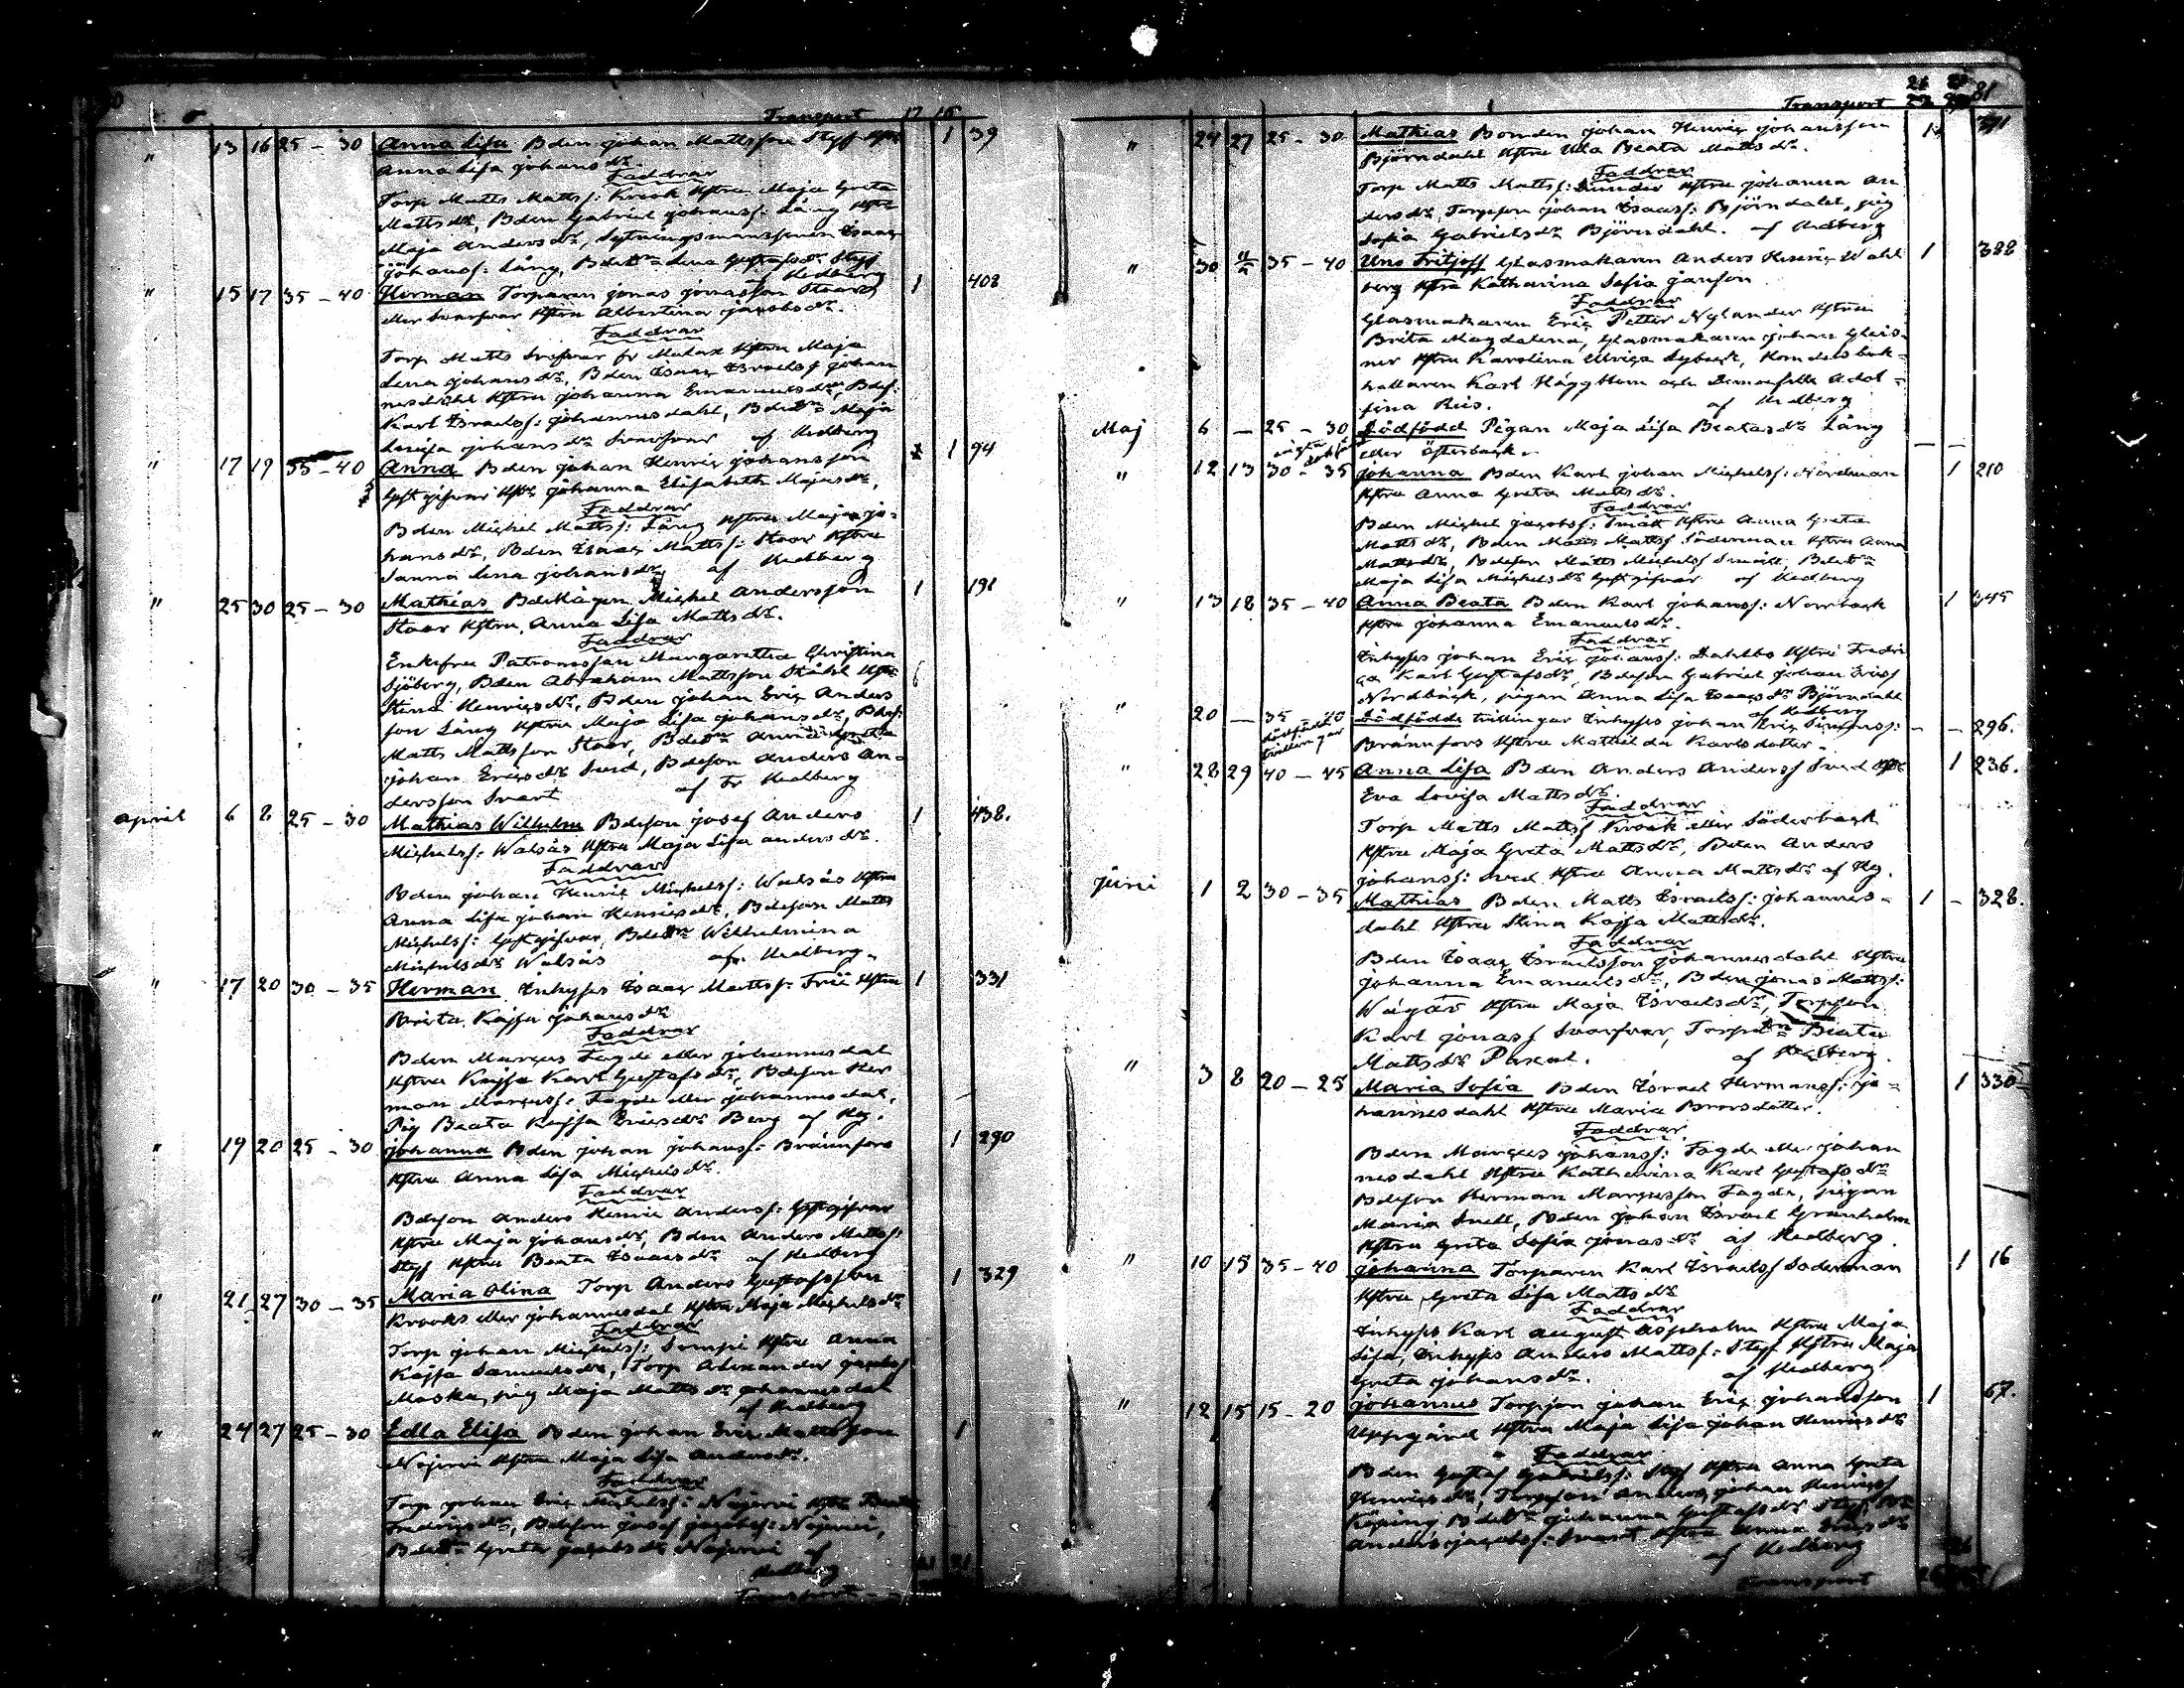 Transport 17 15
" 13 16 25 - 30 Anna Lisa Bden Johan Mattsson Styf Hstru 1 39
Anna Lisa Johansdr.
Faddrar
Torp Matts Mattsf: Krook Hstru Maja Greta
Mattsdr, Bden Gabriel Johansf: Lång Hstru
Maja Andersdr, Sytningsmanssonen Isaac
Johansf: Lång, Bdedtr Lena Gustafsdr Styf
af Hedberg
" 15 17 35 - 40 Herman Torparen Jonas Jonasson Staara 1 408
eller Svarfvar Hstru Albertina Jacobsdr.
Faddrar
Torp Matts Svarfvar fr Malax Hstru Maja
Lena Johansdr, Bden Isaac Israelsf Johan
nesdahl Hstru Johanna Emanuelsdr, Bdes:
Karl Israelsf: Johannesdahl, Bdedtr Maja
Lovisa Johansdr Svarfvar af Hedberg
" 17 19 35 - 40 Anna Bden Johan Henric Johansson 1 94
Gästgifvar Hstru Johanna Elisabeth Majasdr.
Faddrar
Bden Michel Mattsf: Lång Hstru Maja Jo-
hansdr, Bden Isaac Mattsf: Staar Hstru
Sanna Lena Johansdr af Hedberg
" 25 30 25 - 30 Mathias Bdemågen Michel Andersson 1 191
Staar Hstru Anna Lisa Mattsdr.
Faddrar
Enkefru Margaretha Christina
Sjöberg, Bden Abraham Mattsson Ståhl Hstru
Stina Henricsdr, Bden Johan Eric Anders
son Lång Hstru Maja Lisa Johansdr, Bdes:
Matts Mattsson Staar, Bdedtr Anna Greta
Johan Ericsdr Sved, Bdeson Anders An-
dersson Svart af Fr Hedberg
April 6 8 25 - 30 Mathias Wilhelm Bdeson Josef Anders 1 438.
Michelsf: Walsås Hstru Maja Lisa Andersdr.
Faddrar
Bden Johan Henric Michelsf: Walsås Hstru
Anna Lisa Johan Henricsdr, Bdeson Matts
Michelsf: Gästgifvar, Bdedtr Wilhelmina
Michelsdr Walsås af Hedberg.
" 17 20 30 - 35 Herman Inhyses Isaac Mattsf: Frii Hstru 1 331
Brita Kajsa Johansdr
Faddrar
Bden Marcus Fagde eller Johannesdal
Hstru Kajsa Karl Gustafsdr, Bdeson Her
man Marcusf: Fagde eller Johannesdal,
Pig Beata Kajsa Ericsdr Berg af Hg.
" 19 20 25 - 30 Johanna Bden Johan Johansf: Brännfors 1 290
Hstru Anna Lisa Michelsdr.
Faddrar
Bdeson Anders Henric Andersf: Gästgifvar
Hstru Maja Johansdr, Bden Anders Mattsf:
Styf Hstru Beata Isaacsdr af Hedberg
" 21 27 30 - 35 Maria Olina Torp Anders Gustafsson 1 329
Krooks eller Johannesdal Hstru Maja Michelsdr
Faddrar
Torp Johan Michelsf: Hstru Anna
Kajsa Samuelsdr, Torp Alexander Jacobsf
Maska, pig Maja Mattsdr Johannesdal
af Hedberg
" 24 27 25 - 30 Edla Elisa Bden Johan Eric Mattsson 1
Nojervi Hstru Maja Lisa Andersdr.
Faddrar
Torp Johan Eric Michelsf: Nojervi Hstru Beata
Fredricsdr, Bdeson Josef Jacobsf: Nojervi,
Bdedtr Greta Jacobsdr Nojervi af
Hedberg
Transport - - 21 21
Transport 81
" 24 27 25 - 30 Mathias Bonden Johan Henric Johansson 1
Björndahl Hstru Ulla Beata Mattsdr.
Faddrar
Torp Matts Mattsf: Sunder Hstru Johanna An
dersdr, Torpson Johan Isaacsf: Björndahl, pig
Sofia Gabrielsdr Björndahl. af Hedberg
" 30 35 - 40 Uno Fritjoff Glasmakaren Anders Henric Wahl 1 388
berg Hstru Katharina Sofia Janson
Faddrar
Glasmakaren Eric Petter Nylander Hstru
Brita Magdalena, Glasmakaren Johan Gleis-
ner Hstru Karolina Ulrica Sybeck, Handelsbok-
hållaren Karl Häggblom och Demoiselle Adol-
fina Reis. af Hedberg
Maj 6 — 25 - 30 Dödfödd Pigan Maja Lisa Beatasdr Lång — —
eller Österback.
" 12 13 30 - 35 Johanna Bden Karl Johan Michelsf: Nordman 1 210
Hstru Anna Greta Mattsdr.
Faddrar
Bden Michel Jacobsf: Smått Hstru Anna Greta
Mattsdr, Bden Matts Mattsf Söderman Hstru Anna
Mattsdr, Bdeson Matts Michelsf Smått, Bdedtr
Maja Lisa Michelsdr Gästgifvar af Hedberg
" 13 18 35 - 40 Anna Beata Bden Karl Johansf: Norrback 1 345
Hstru Johanna Emanuelsdr.
Faddrar
Inhyses Johan Eric Johansf: Dahlbo Hstru Fredri
ca Karl Gustafsdr, Bdeson Gabriel Johan Ericsf
Nordback, pigan Anna Lisa Isaacsdr Björndahl
af Hedberg
" 20 — 35 - 40 Dödfödde tvillingar Inhyses Johan Eric Simonsf: - - 296.
dödfödde tvillingar Brännfors Hstru Mathilda Karlsdotter.
" 28 29 40 - 45 Anna Lisa Bden Anders Andersf Sved Hstru 1 236.
Eva Lovisa Mattsdr.
Faddrar
Torp Matts Mattsf Krook eller Söderback
Hstru Maja Greta Mattsdr, Bden Anders
Johansf: Sved Hstru Anna Mattsdr af Hg.
Juni 1 2 30 - 35 Mathias Bden Matts Israelsf: Johannes- 1 - 328.
dahl Hstru Stina Kajsa Mattsdr.
Faddrar
Bden Isaac Israelsson Johannesdahl Hstru
Johanna Emanuelsdr, Bden Jonas Mattsf:
Wägar Hstru Maja Israelsdr, Torpson
Karl Jonasf Svarfvar, Torpdtr Beata
Mattsdr Paxal. af Hedberg.
" 3 8 20 - 25 Maria Sofia Bden Israel Hermansf: Jo- 1 330
hannesdahl Hstru Maria Brorsdotter.
Faddrar.
Bden Marcus Johansf: Fagde eller Johan
nesdahl Hstru Katharina Karl Gustafsdr
Bdeson Herman Marcusson Fagde, pigan
Maria Snell, Bden Johan Israel Granholm
Hstru Greta Sofia Jonasdr af Hedberg.
" 10 15 35 - 40 Johanna Torparen Karl Israelsf Söderman 1 16
Hstru Greta Lisa Mattsdr
Faddrar
Inhyses Karl August Aspholm Hstru Maja
Lisa, Inhyses Anders Mattsf: Styf Hstru Maja
Greta Johansdr. af Hedberg
" 12 15 15 - 20 Johannes Torpson Johan Eric Johansson 1 67.
Uppgård Hstru Maja Lisa Johan Henricsdr
Faddrar
Bden Gustaf Gabrielsf: Styf Hstru Anna Greta
Henricsdr, Torpson Anders Johan Henricsf
Köping Bdedtr Johanna Gustafsdr Styf,
Anders Jacobsf: Svart Hstru Anna Ericsdr
af Hedberg
Transport